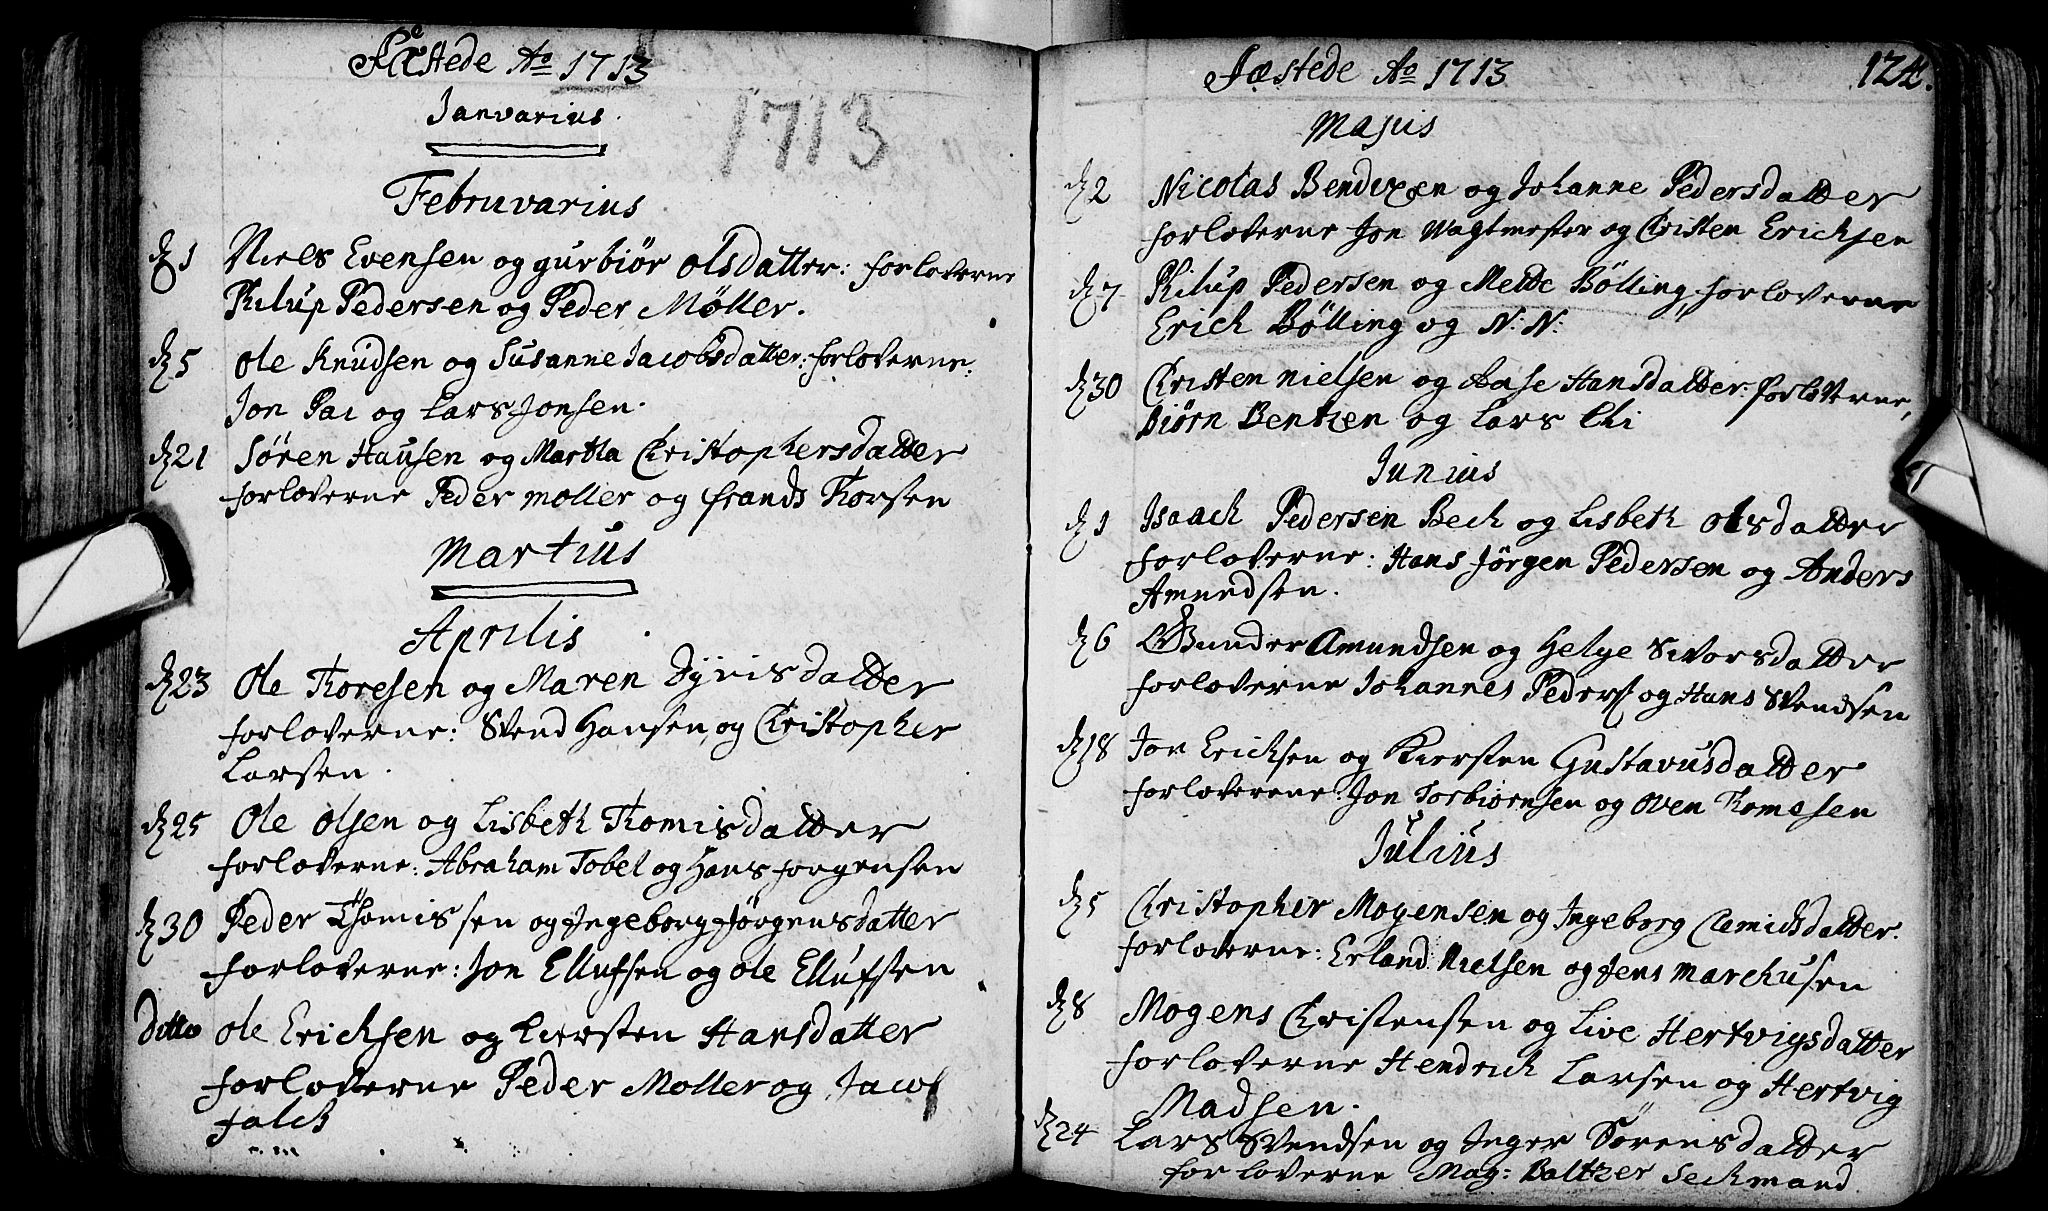 Fæstede Ao 1713
1713
Ianvarius
Februvarius
dz 1 Niels Evensen og gurbiör olsdatter: forloverne
Philup Pedersen og Peder Møller.
dz 5 ole Knudsen og Susanne Jacobsdatter: forloverne:
Jon Pai og Lars Jonsen.
dz 21 Søren Hansen og Martha Christophersdatter
forloverne Peder moller og frands Thorsen
Martius
Aprilis
dz 23 Ole Thoresen og Maren Dyrisdatter
forloverne: Svend Hansen og Christopher
Larsen.
dz 25 Ole olsen og Lisbeth Thomisdatter
forloverne: Abraham Tobel og Hans Jorgensen
dz 30 Peder Thomissen og Ingeborg Jørgensdatter
forloverne: Jon Ellufsen og ole Ellufsen
Ditto ole Erichsen og Kiersten Hansdatter
forloverne Peder Moller og Jacob
falch
Fæstede Ao 1713
124.
Majus
dz 2 Nicolas Bendixen og Johanne Pedersdatter
forloverne Jon Vagtmester og Christen Erichsen
dz 7 Philup Pedersen og Mette Bölling, forloverne
Erich Bölling og N: N:
dz 30 Christen nielsen og Aase Hansdatter: forloverne,
Biørn Bentzen og Lars Chi
Iunius
dz 1 Isaach Pedersen Bech og Lisbeth olsdatter
forloverne: Hans Jørgen Pedersen og Anders
Amundsen.
dz 6 Gunder Amundsen og Helge Sivorsdatter
forloverne Johannes Peders og Hans Svendsen
dz 18 Jon Erichsen og Kiersten Gustavusdatter
forloverene Jon Torbiornsen og Oven Thomesen
Julius
dz 5 Christopher Mogensen og Ingeborg Clemidsdatter.
forloverne: Erland Nielsen og Jens Marchusen
dz 8 Mogens Christensen og Live Hertvigsdatter
forloverne Hendrich Larsen og Hertvig
Madsen.
dz 24 Lars Svendsen og Inger Sørensdatter
forloverne Mag: Baltzer Sechmand